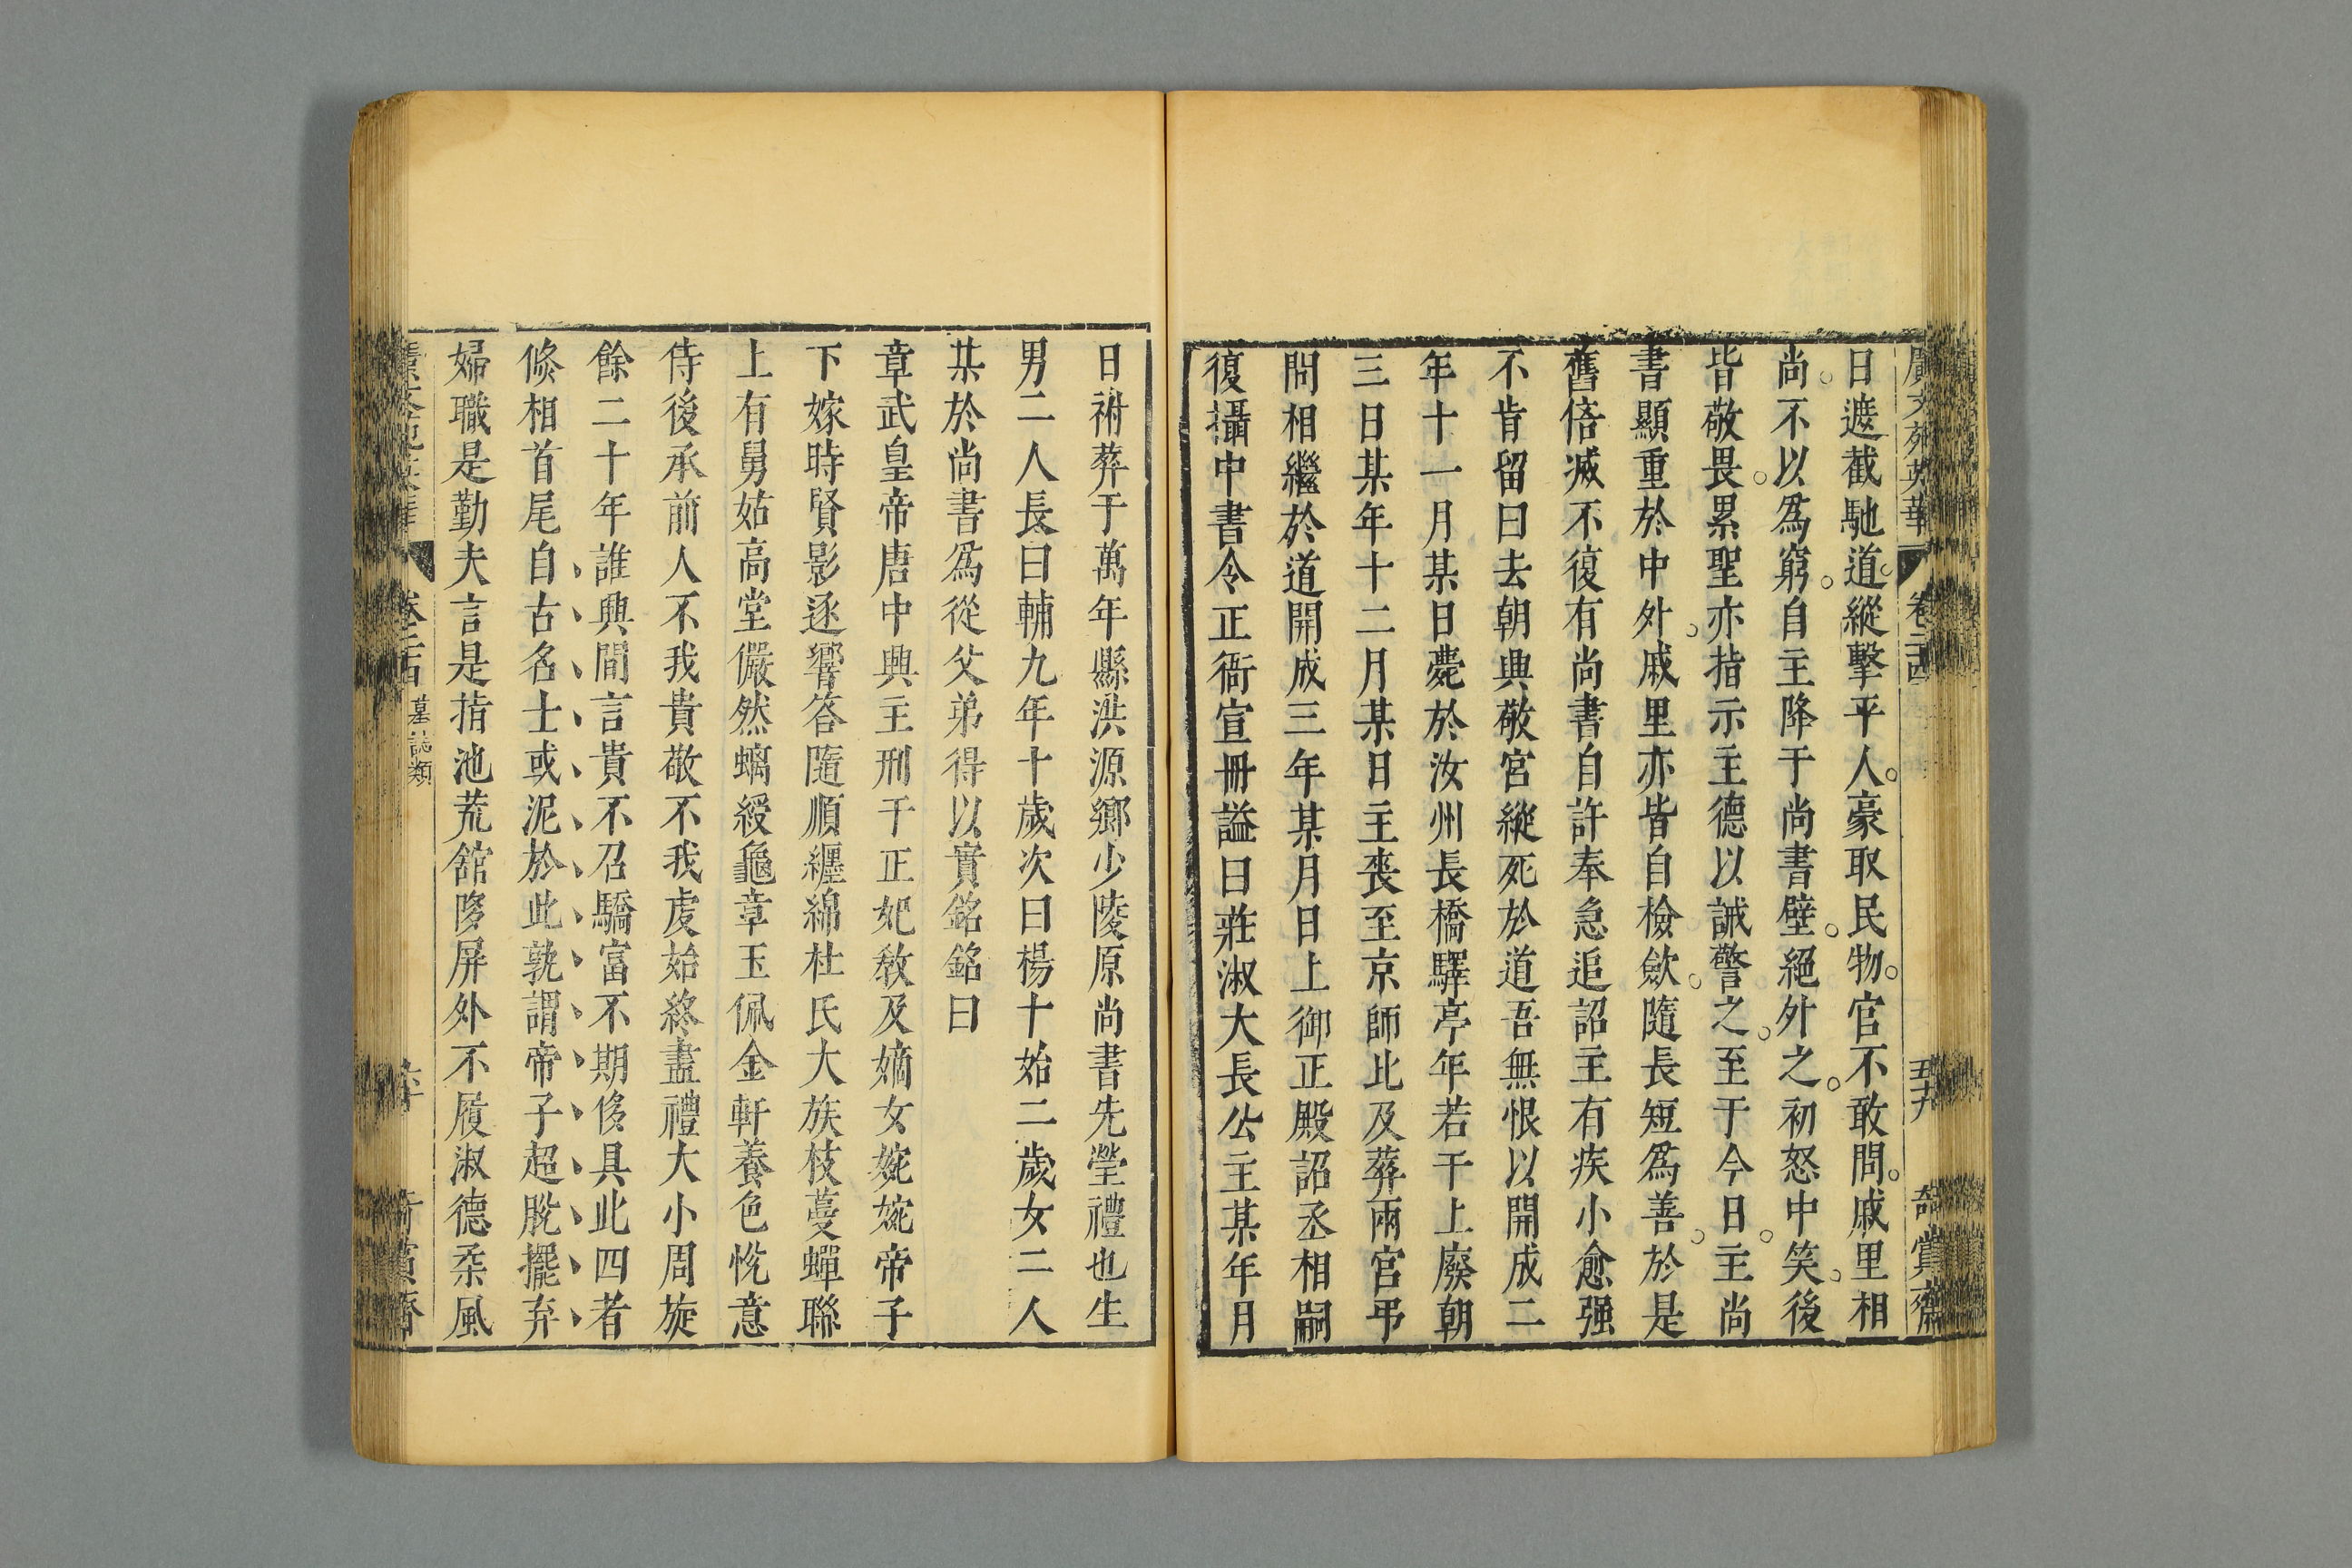 廣文苑英華 卷二十四 五十九 奇賞齋
日遮截馳道縱擊平人豪取民物官不敢問戚里相
尚不以爲窮自主降于尚書壁絕外之初怒中笑後
皆敬畏累聖亦指示主德以誡警之至于今日主尚
書顯重於中外戚里亦皆自檢歛隨長短爲善於是
舊俗滅不復有尚書自許奉急追詔主有疾小愈强
不肯留曰去朝興敬宮縱死於道吾無恨以開成二
年十一月某日薨於汝州長橋驛亭年若干上廢朝
三日某年十二月某日主喪至京師比及葬兩宮弔
問相繼於道開成三年某月日上御正殿詔丞相嗣
復攝中書令正衙宣冊謚曰莊淑大長公主某年月
日祔葬于萬年縣洪源鄉少陵原尚書先塋禮也生
男二人長曰輔九年十歲次曰楊十始二歲女二人
某於尚書爲從父弟得以實銘銘曰
章武皇帝唐中興主刑于正妃敎及嫡女婉婉帝子
下嫁時賢影逐響答隨順纏綿杜氏大族枝蔓蟬聯
上有舅姑高堂儼然螭綬龜章玉佩金軒養色恱意
侍後承前人不我貴敬不我虔始終盡禮大小周旋
餘二十年誰興間言貴不召驕富不期侈具此四者
倐相首尾自古名士或泥於此孰謂帝子超脫擺弃
婦職是勤夫言是指池荒舘陊屏外不履淑德柔風
文苑英華 卷二十四 墓誌類 六十 奇賞齋